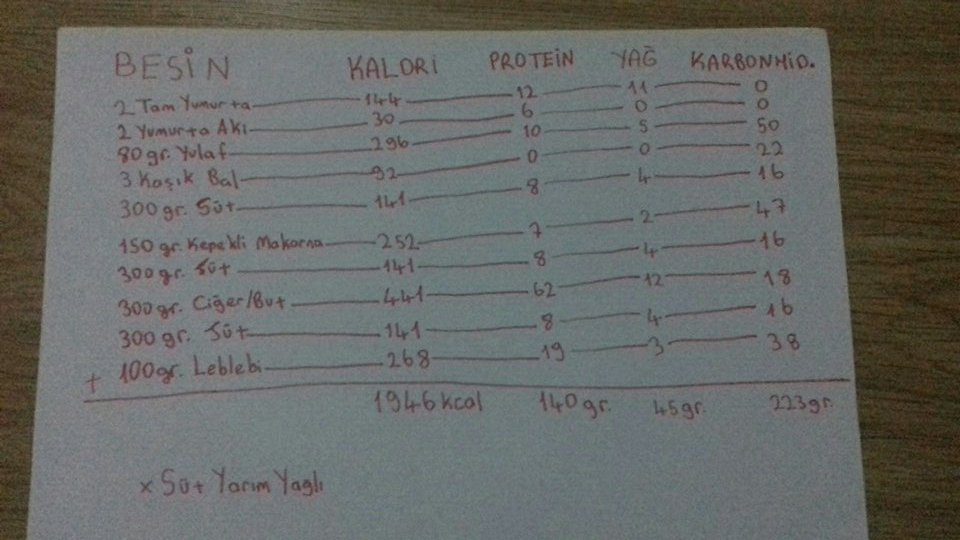 BESİN KALORİ PROTEİN YAĞ KARBONHİD.
2 Tam Yumurta 144 12 11 0
2 Yumurta Akı 30 6 0 0
80 gr. Yulaf 296 10 5 50
3 Kaşık Bal 92 0 0 22
300 gr. Süt 141 8 4 16
150 gr. Kepekli Makarna 252 7 2 47
300 gr. Süt 141 8 4 16
300 gr. Ciğer/But 441 62 12 18
300 gr. Süt 141 8 4 16
+ 100 gr. Leblebi 268 19 3 38
1946 kcal 140 gr. 45 gr. 223 gr.
x Süt Yarım Yağlı